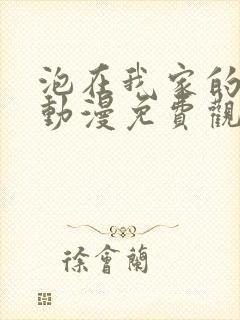 泡在我家的
動漫免費觀
徐會蘭